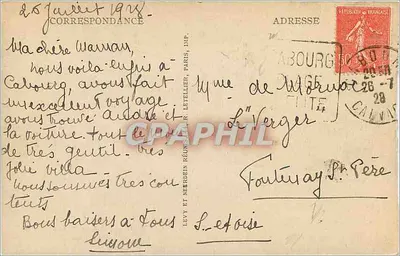 25 Juillet 1928
CORRESPONDANCE
ADRESSE
Ma chère Maman,
nous voilà enfin à
Cabourg, avons fait
un excellent voyage
avons trouvé André et
la voiture tout
de très gentil très
jolie villa
nous sommes très con
tents
Bons baisers à tous
Simone
LEVY ET NEURDEIN RÉUNIS, LETELLIER, PARIS, IMP.
CPAPHIL
ABOURG
AGE
ITÉ
26 -7
28
CALVADOS
Mme de
Le Verger
Fontenay St Père
S. et Oise